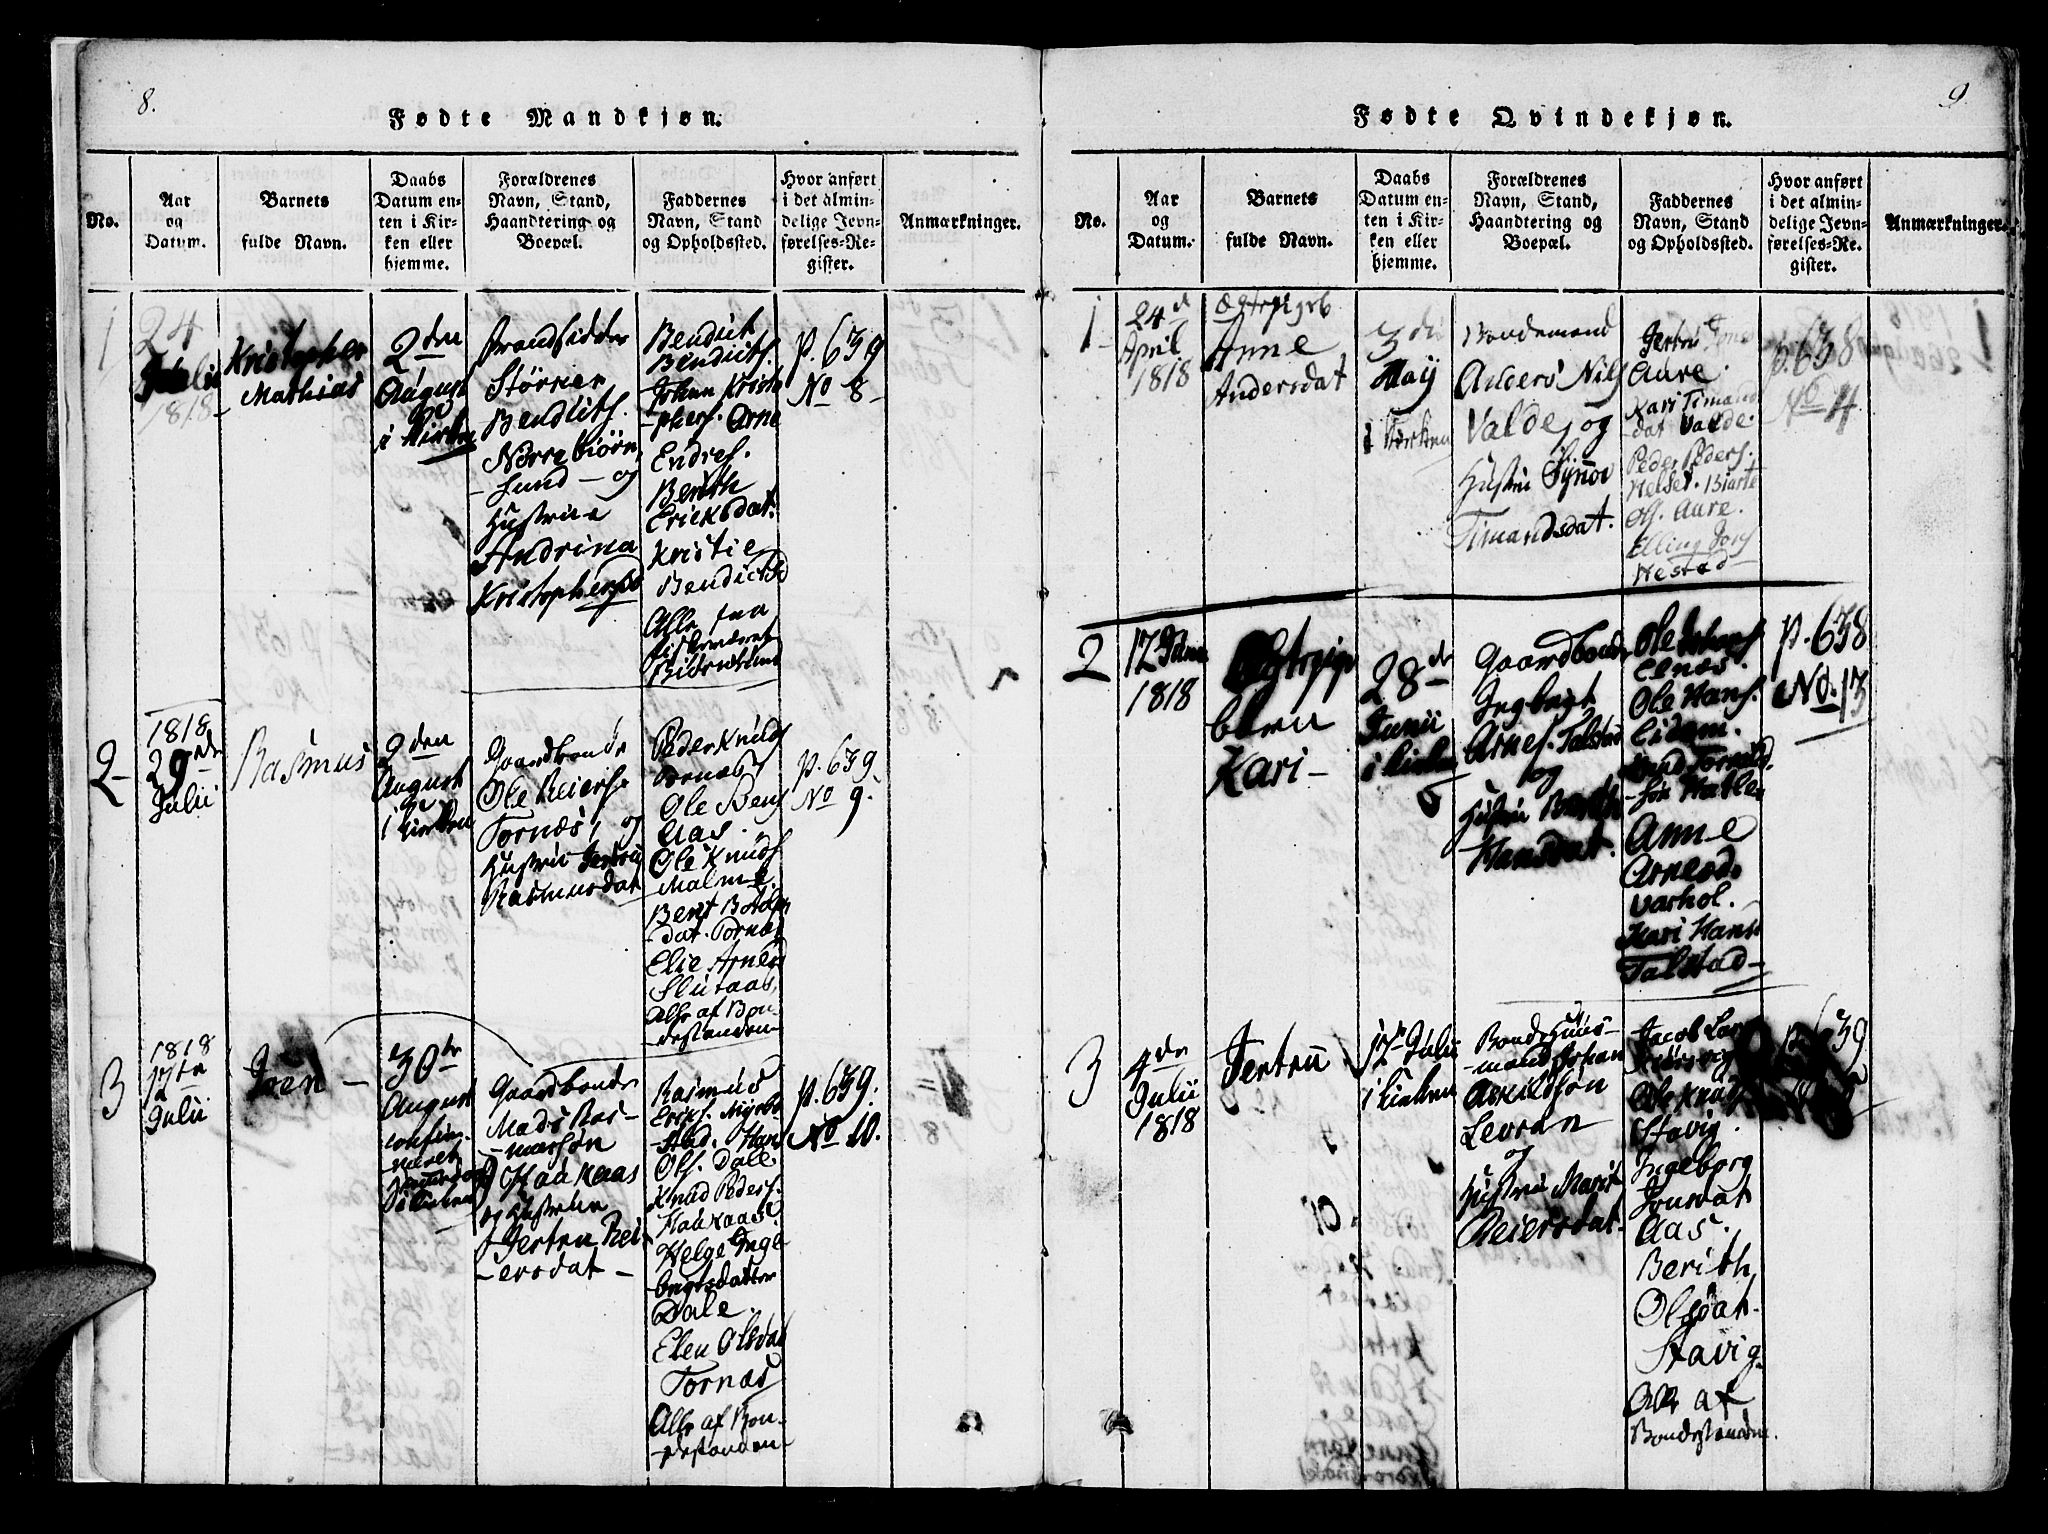 8.
Fødte Mandkjøn.
No.
Aar
og
Datum.
Barnets
fulde Navn.
Daabs
Datum en-
ten i Kir-
ken eller
hjemme.
Forældrenes
Navn, Stand,
Haandtering og
Boepæl.
Faddernes
Navn, Stand
og Opholdssted.
Hvor anført
i det almin-
delige Jevn-
førelses-Re-
gister.
Anmærkninger.
1
24
Julii
1818
Kristopher
Mathias
2den
August
i Kirken
Strandsidder
Størker
Bendiths.
Nørre Biørn-
-sund- og
Hustrue
Andrina
Kristophersd
Bendict
Bendicts.
Johan Kristo
-phers. Arne
Endres.
Berith
Ericksdat.
Kristie
Bendictsd
Alle fra
Biørnesund
p. 639
No 8-
2-
1818
29de
Julii
Rasmus
2den
August
i Kirken
Gaardbonde
Ole Reiers.
Tornæs, og
Hustrue Jertru
Rasmusdat
Peder Knuds
Tornæs
Ole Bens
Aas.
Ole Knuds
Malme.
Berit
-dat. Tornæs
Elie Arnes
Slutaas,
Alle af Bon-
destanden
p. 639.
No 9.
3
1818
17te
Julii
Iver -
30te
August
confir-
meret
Gaardbonde
Mads Ras-
-mussøn
Haakaas
og Hustrue
Jertru Rei-
-ersdat -
Rasmus
Ericks. Myrbo
-stad. Hans
Ols. Dale.
Knud Peders.
Haakaas
Helge Inge-
brigtsdatter
Dale.
Elen Olsdat
Tornæs
Alle af Bon-
-destanden-
p. 639.
No 10.
9.
Fødte Qvindekjøn.
No.
Aar
og
Datum.
Barnets
fulde Navn.
Daabs
Datum en-
ten i Kir-
ken eller
hjemme.
Forældrenes
Navn, Stand,
Haandtering og
Boepæl.
Faddernes
Navn, Stand
og Opholdssted.
Hvor anført
i det almin-
delige Jevn-
førelses-Re-
gister.
Anmærkninger.
1-
24d
April
1818
Ægtepigeb
Anne
Andersdat
3die
Maij
i Kirken
Bondemand
Anders Nils
Valde, og
Hustru Synov
Timandsdat.
Jertru
Aure.
Kari Timand
-dat Valde.
Peder Peders.
Helset. Biarte
Ols. Aure.
Elling Jons
Nestad-
p. 638
No 4
2
17 Juni
1818
Ægtepige
barn
Kari-
28de
Junii
i Kirken
Gaardbonde
Ingbrigt
Arnes. Talstad
og
Hustru Berith
Hansdat.
Ole
Elnæs.
Ole Hans.
Eidem.
-søn Hatle
Anne
Arnesd.
Varhol.
Kari Hans
Talstad-
p. 638
No. 13
3
4de
Julii
1818
Jertru
12te Julii
i Kirken
Bonde Huus-
-mand Johan
Askildsøn
Levran
og
Hustru Marit
Reiersdat.
Jacob Lars
Ole Knuds
Stavig.
Ingeborg
Jonsdat
Aas.
Berith
Olsdat.
Stavig.
Alle af
Bondestanden.
p. 639